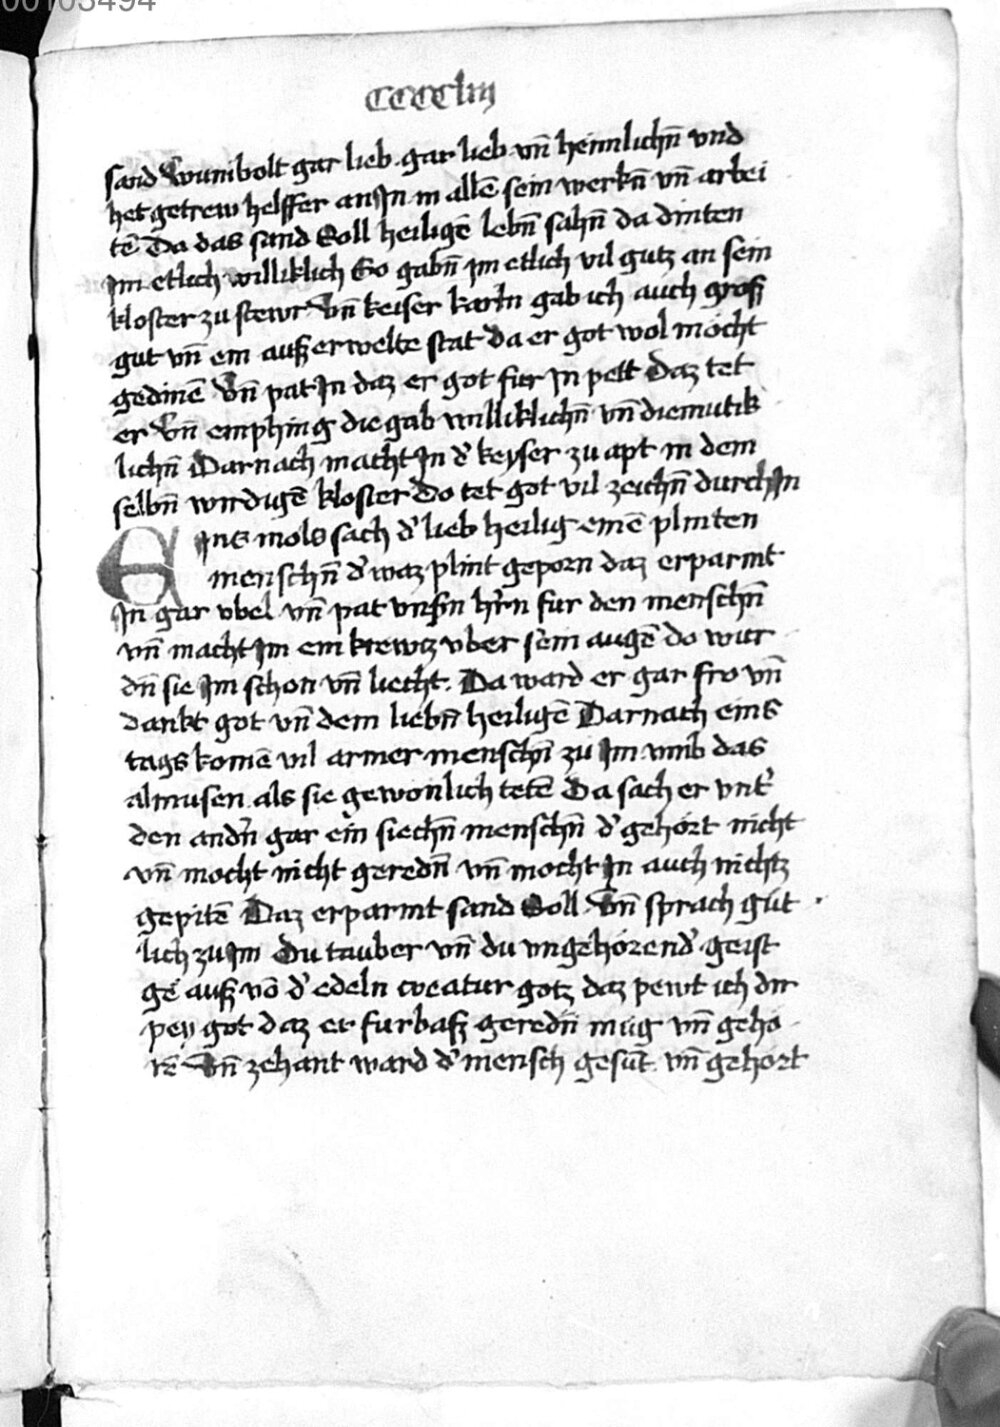 00103494
CCCCliij
sand Wunibolt gar lieb. gar lieb vn̄ heimlichn̄ vnd
het getrew helffer an In in allē sein werkn̄ vn̄ arbei
tē Da das sand Soll heiligē lebn̄ sahn̄ da dinten
Im etlich williklich So gabn̄ im etlich vil gutz an sein
kloster zu stewr Vn̄ keiser karln gab ich auch groß
gut vn̄ ein außerwelte stat da er got wol mocht
gedinē Vn̄ pat In daz er got fur In pett Daz tet
er Vn̄ emphing die gab williklichn̄ vn̄ diemutik
lichn̄ Darnach macht In d' keyser zu apt in dem
selbn̄ wirdigē kloster Do tet got vil zeichn̄ durch In
Eins mols sach d' lieb heilig einē plinten
menschn̄ d' waz plint geporn daz erparmt
In gar vbel vn̄ pat vnsn̄ h'rn fur den menschn̄
vn̄ macht Im ein krewtz vber sein augē do wur
dn̄ sie Im schon vn̄ liecht. Da ward er gar fro vn̄
dankt got vn̄ dem liebn̄ heiligē Darnach eins
tags komē vil armer menschn̄ zu Im vmb das
almusen als sie gewonlich tetē Da sach er vnt'
den andn̄ gar ein siechn̄ menschn̄ d' gehort nicht
vn̄ mocht nicht geredn̄ vn̄ mocht In auch nichtz
gepitē Daz erparmt sand Soll. Vn̄ sprach gut
lich zu Im Du tauber vn̄ du vngehorend' geist
gē auß vō d' edeln creatur gotz daz pewt ich dir
pey got daz er furbaß geredn̄ mug vn̄ geho
rē Vn̄ zehant ward d' mensch gesūt vn̄ gehort